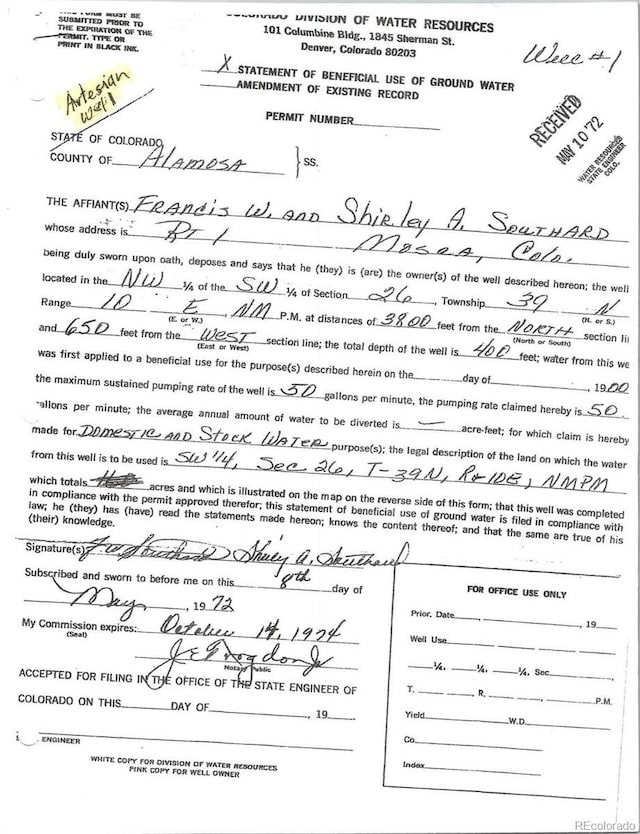 THIS FORM MUST BE
SUBMITTED PRIOR TO
THE EXPIRATION OF THE
PERMIT. TYPE OR
PRINT IN BLACK INK.
COLORADO DIVISION OF WATER RESOURCES
101 Columbine Bldg., 1845 Sherman St.
Denver, Colorado 80203
Well #1
Artesian
well
X STATEMENT OF BENEFICIAL USE OF GROUND WATER
AMENDMENT OF EXISTING RECORD
PERMIT NUMBER
RECEIVED
MAY 10 '72
WATER RESOURCES
STATE ENGINEER
COLO.
STATE OF COLORADO
COUNTY OF Alamosa } SS.
THE AFFIANT(S) Francis W. and Shirley A. Southard
whose address is RT 1 Mosca, Colo.
being duly sworn upon oath, deposes and says that he (they) is (are) the owner(s) of the well described hereon; the well
located in the NW ¼ of the SW ¼ of Section 26, Township 39 N
(N. or S.)
Range 10 E, NM P.M. at distances of 3800 feet from the NORTH section li
(E. or W.) (North or South)
and 650 feet from the West section line; the total depth of the well is 400 feet; water from this we
(East or West)
was first applied to a beneficial use for the purpose(s) described herein on the day of , 1900
the maximum sustained pumping rate of the well is 50 gallons per minute, the pumping rate claimed hereby is 50
allons per minute; the average annual amount of water to be diverted is — acre-feet; for which claim is hereby
made for Domestic and Stock Water purpose(s); the legal description of the land on which the water
from this well is to be used is SW 1/4, Sec 26, T-39N, R-10E, NMPM
which totals acres and which is illustrated on the map on the reverse side of this form; that this well was completed
in compliance with the permit approved therefor; this statement of beneficial use of ground water is filed in compliance with
law; he (they) has (have) read the statements made hereon; knows the content thereof; and that the same are true of his
(their) knowledge.
Signature(s) F W Southard Shirley A. Southard
Subscribed and sworn to before me on this 8th day of
May, 1972
My Commission expires: October 14, 1974
(Seal)
Notary Public
ACCEPTED FOR FILING IN THE OFFICE OF THE STATE ENGINEER OF
COLORADO ON THIS DAY OF , 19
ENGINEER
WHITE COPY FOR DIVISION OF WATER RESOURCES
PINK COPY FOR WELL OWNER
FOR OFFICE USE ONLY
Prior. Date , 19
Well Use
¼, ¼, ¼, Sec. ,
T. , R. , P.M.
Yield W.D.
Co.
Index
REcolorado